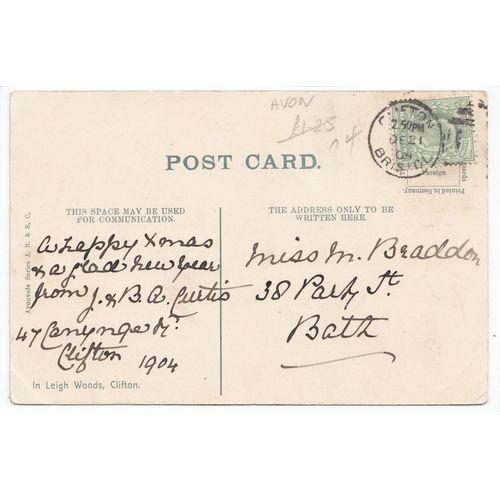 AVON
£1.25
POST CARD.
CLIFTON
2.50PM
DE 21
04
BRISTOL
Foreign
Printed in Germany.
THIS SPACE MAY BE USED
FOR COMMUNICATION.
THE ADDRESS ONLY TO BE
WRITTEN HERE.
Aquavele Series J. B. & S. C.
A happy Xmas
& a glad New Year
from J. & B. A. Curtis
47 Canynge
Clifton 1904
Miss M. Braddon
38 Park St.
Bath
In Leigh Woods, Clifton.